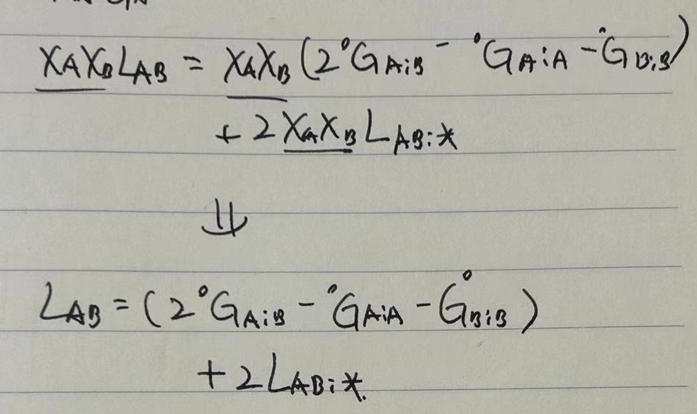 X_A X_B L_AB = X_A X_B (2°G_A:B - °G_A:A - °G_B:B)
+ 2 X_A X_B L_AB:*
⇓
L_AB = (2°G_A:B - °G_A:A - °G_B:B)
+ 2 L_AB:*.